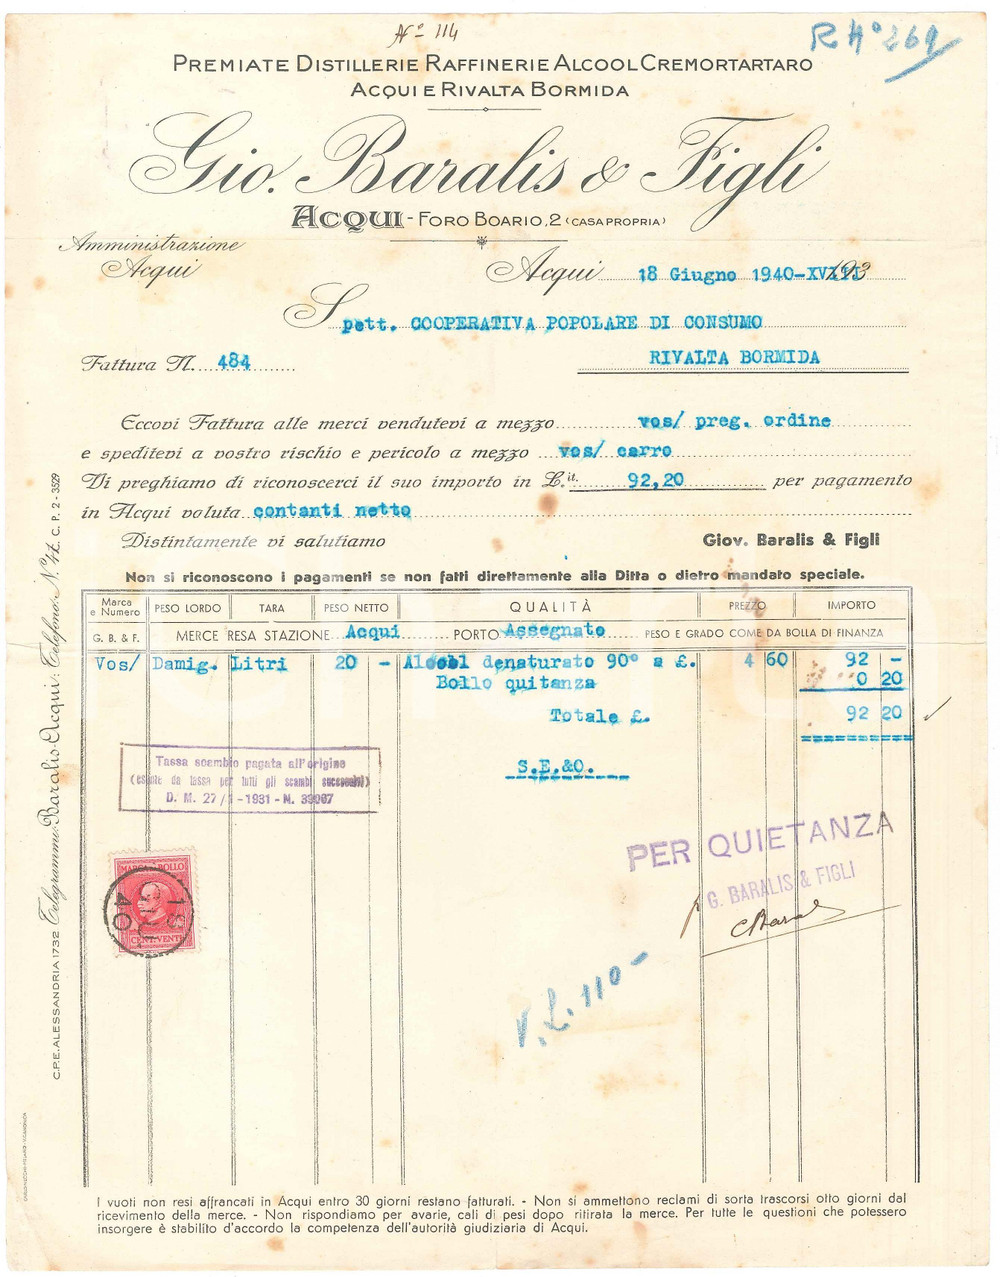 N° 114
R N° 269
PREMIATE DISTILLERIE RAFFINERIE ALCOOL CREMORTARTARO
ACQUI E RIVALTA BORMIDA
Gio. Baralis & Figli
ACQUI - FORO BOARIO, 2 (CASA PROPRIA)
Amministrazione
Acqui
Acqui 18 Giugno 1940-XVIII 193
Spett. COOPERATIVA POPOLARE DI CONSUMO
Fattura N. 484 RIVALTA BORMIDA
Eccovi Fattura alle merci vendutevi a mezzo vos/ preg. ordine
e speditevi a vostro rischio e pericolo a mezzo vos/ carro
Vi preghiamo di riconoscerci il suo importo in L.it. 92,20 per pagamento
in Acqui valuta contanti netto
Distintamente vi salutiamo Giov. Baralis & Figli
Non si riconoscono i pagamenti se non fatti direttamente alla Ditta o dietro mandato speciale.
Marca e Numero PESO LORDO TARA PESO NETTO QUALITÀ PREZZO IMPORTO
G. B. & F. MERCE RESA STAZIONE Acqui PORTO Assegnato PESO E GRADO COME DA BOLLA DI FINANZA
Vos/ Damig. Litri 20 - Alcool denaturato 90° a £. 4 60 92 -
Bollo quitanza 0 20
Totale £. 92 20
S.E.&O.
Tassa scambio pagata all'origine
(esente da tassa per tutti gli scambi successivi)
D. M. 27/1-1931 - N. 33067
PER QUIETANZA
G. BARALIS & FIGLI
MARCA BOLLO
19
GIU
40
CENT. VENTI
L. 110-
C.P.E. ALESSANDRIA 1732 Telegrammi: Baralis-Acqui: Telefono: N. 42 C. P. 2 - 3529
I vuoti non resi affrancati in Acqui entro 30 giorni restano fatturati. - Non si ammettono reclami di sorta trascorsi otto giorni dal
ricevimento della merce. - Non rispondiamo per avarie, cali di pesi dopo ritirata la merce. Per tutte le questioni che potessero
insorgere è stabilito d'accordo la competenza dell'autorità giudiziaria di Acqui.